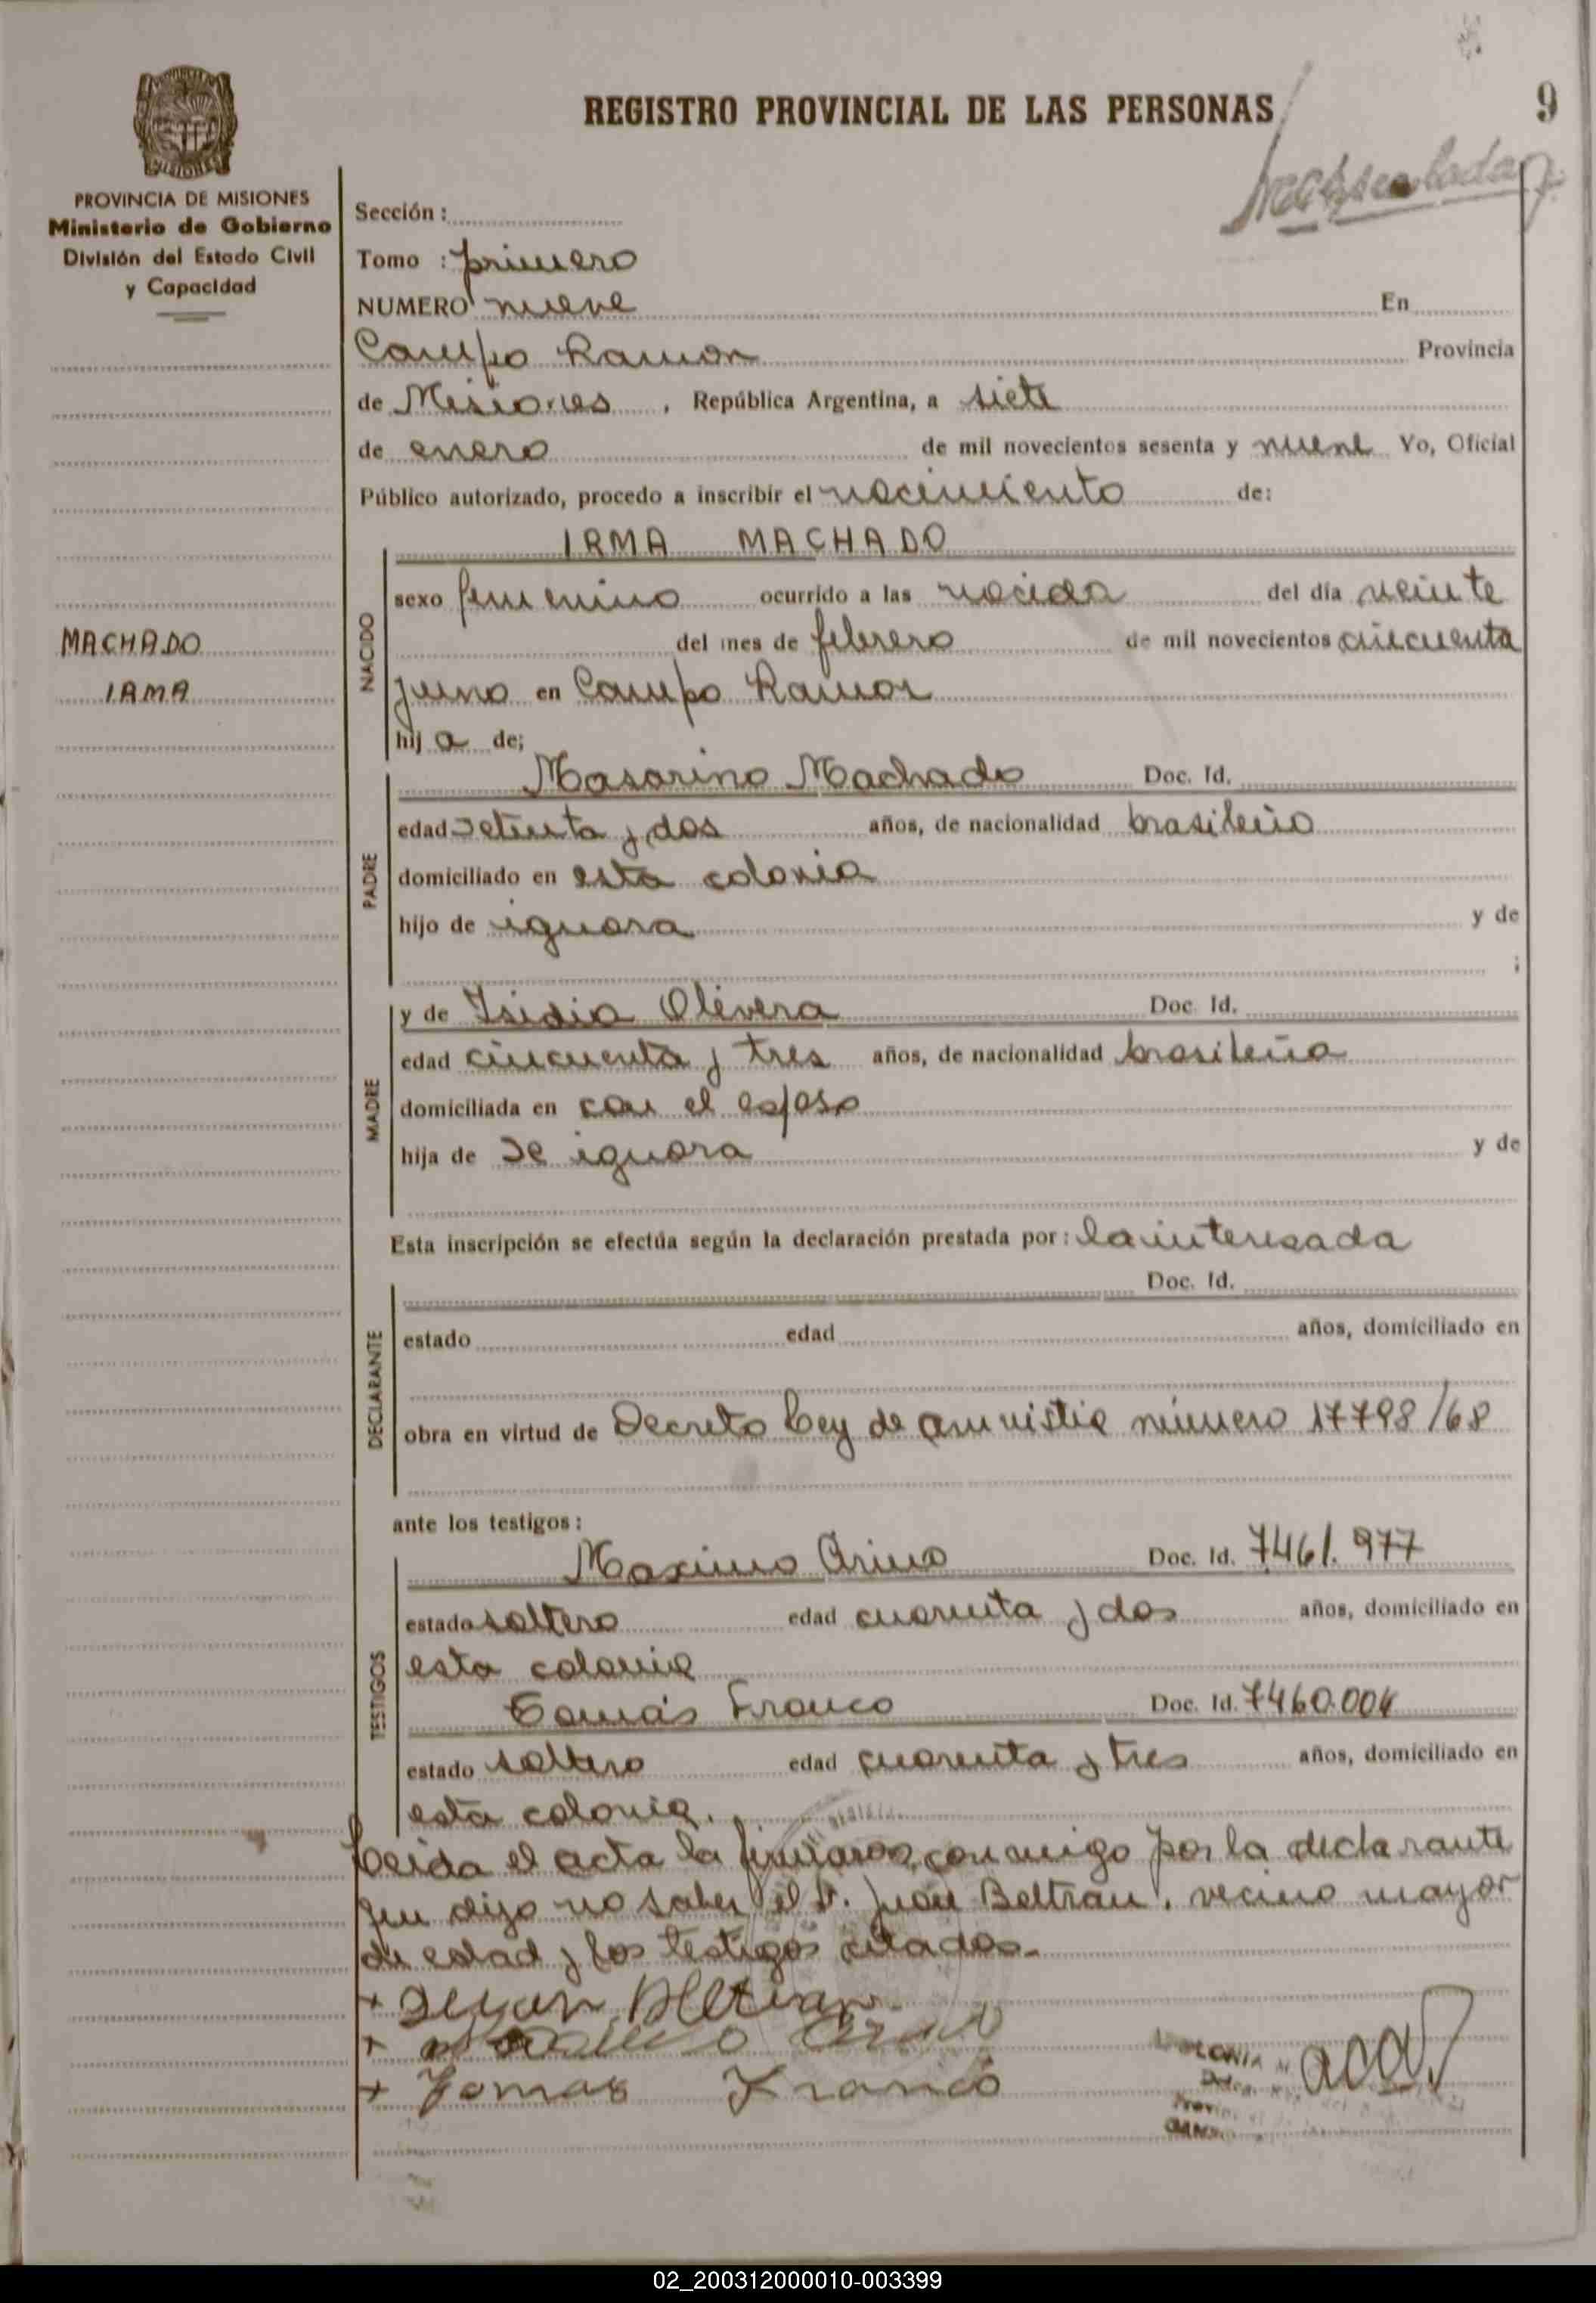 REGISTRO PROVINCIAL DE LAS PERSONAS
9
PROVINCIA DE MISIONES
Ministerio de Gobierno
División del Estado Civil
y Capacidad
Sección :
Tomo : primero
NUMERO nueve En
Campo Ramon Provincia
de Misiones , República Argentina, a siete
de enero de mil novecientos sesenta y nueve Yo, Oficial
Público autorizado, procedo a inscribir el nacimiento de:
IRMA MACHADO
NACIDO
sexo femenino ocurrido a las nacida del día veinte
del mes de febrero de mil novecientos cincuenta
y uno en Campo Ramon
hij a de;
MACHADO
IRMA
PADRE
Masarino Machado Doc. Id.
edad setenta y dos años, de nacionalidad brasileño
domiciliado en esta colonia
hijo de ignora y de
;
MADRE
y de Isidia Olivera Doc. Id.
edad cincuenta y tres años, de nacionalidad brasileña
domiciliada en con el esposo
hija de se ignora y de
Esta inscripción se efectúa según la declaración prestada por : la interesada
DECLARANTE
Doc. Id.
estado edad años, domiciliado en
obra en virtud de Decreto Ley de amnistia número 17798/68
ante los testigos :
TESTIGOS
Maximo Doc. Id. 7461.977
estado soltero edad cuarenta y dos años, domiciliado en
esta colonia
Tomás Franco Doc. Id. 7460.004
estado soltero edad cuarenta y tres años, domiciliado en
esta colonia.
Leida el acta la firmaron conmigo por la declarante
que dijo no saber el Sr. Juan Beltran, vecino mayor
de edad y los testigos citados.
+ Beltran
+
+ Tomas Franco
COLONIA
02_200312000010-003399